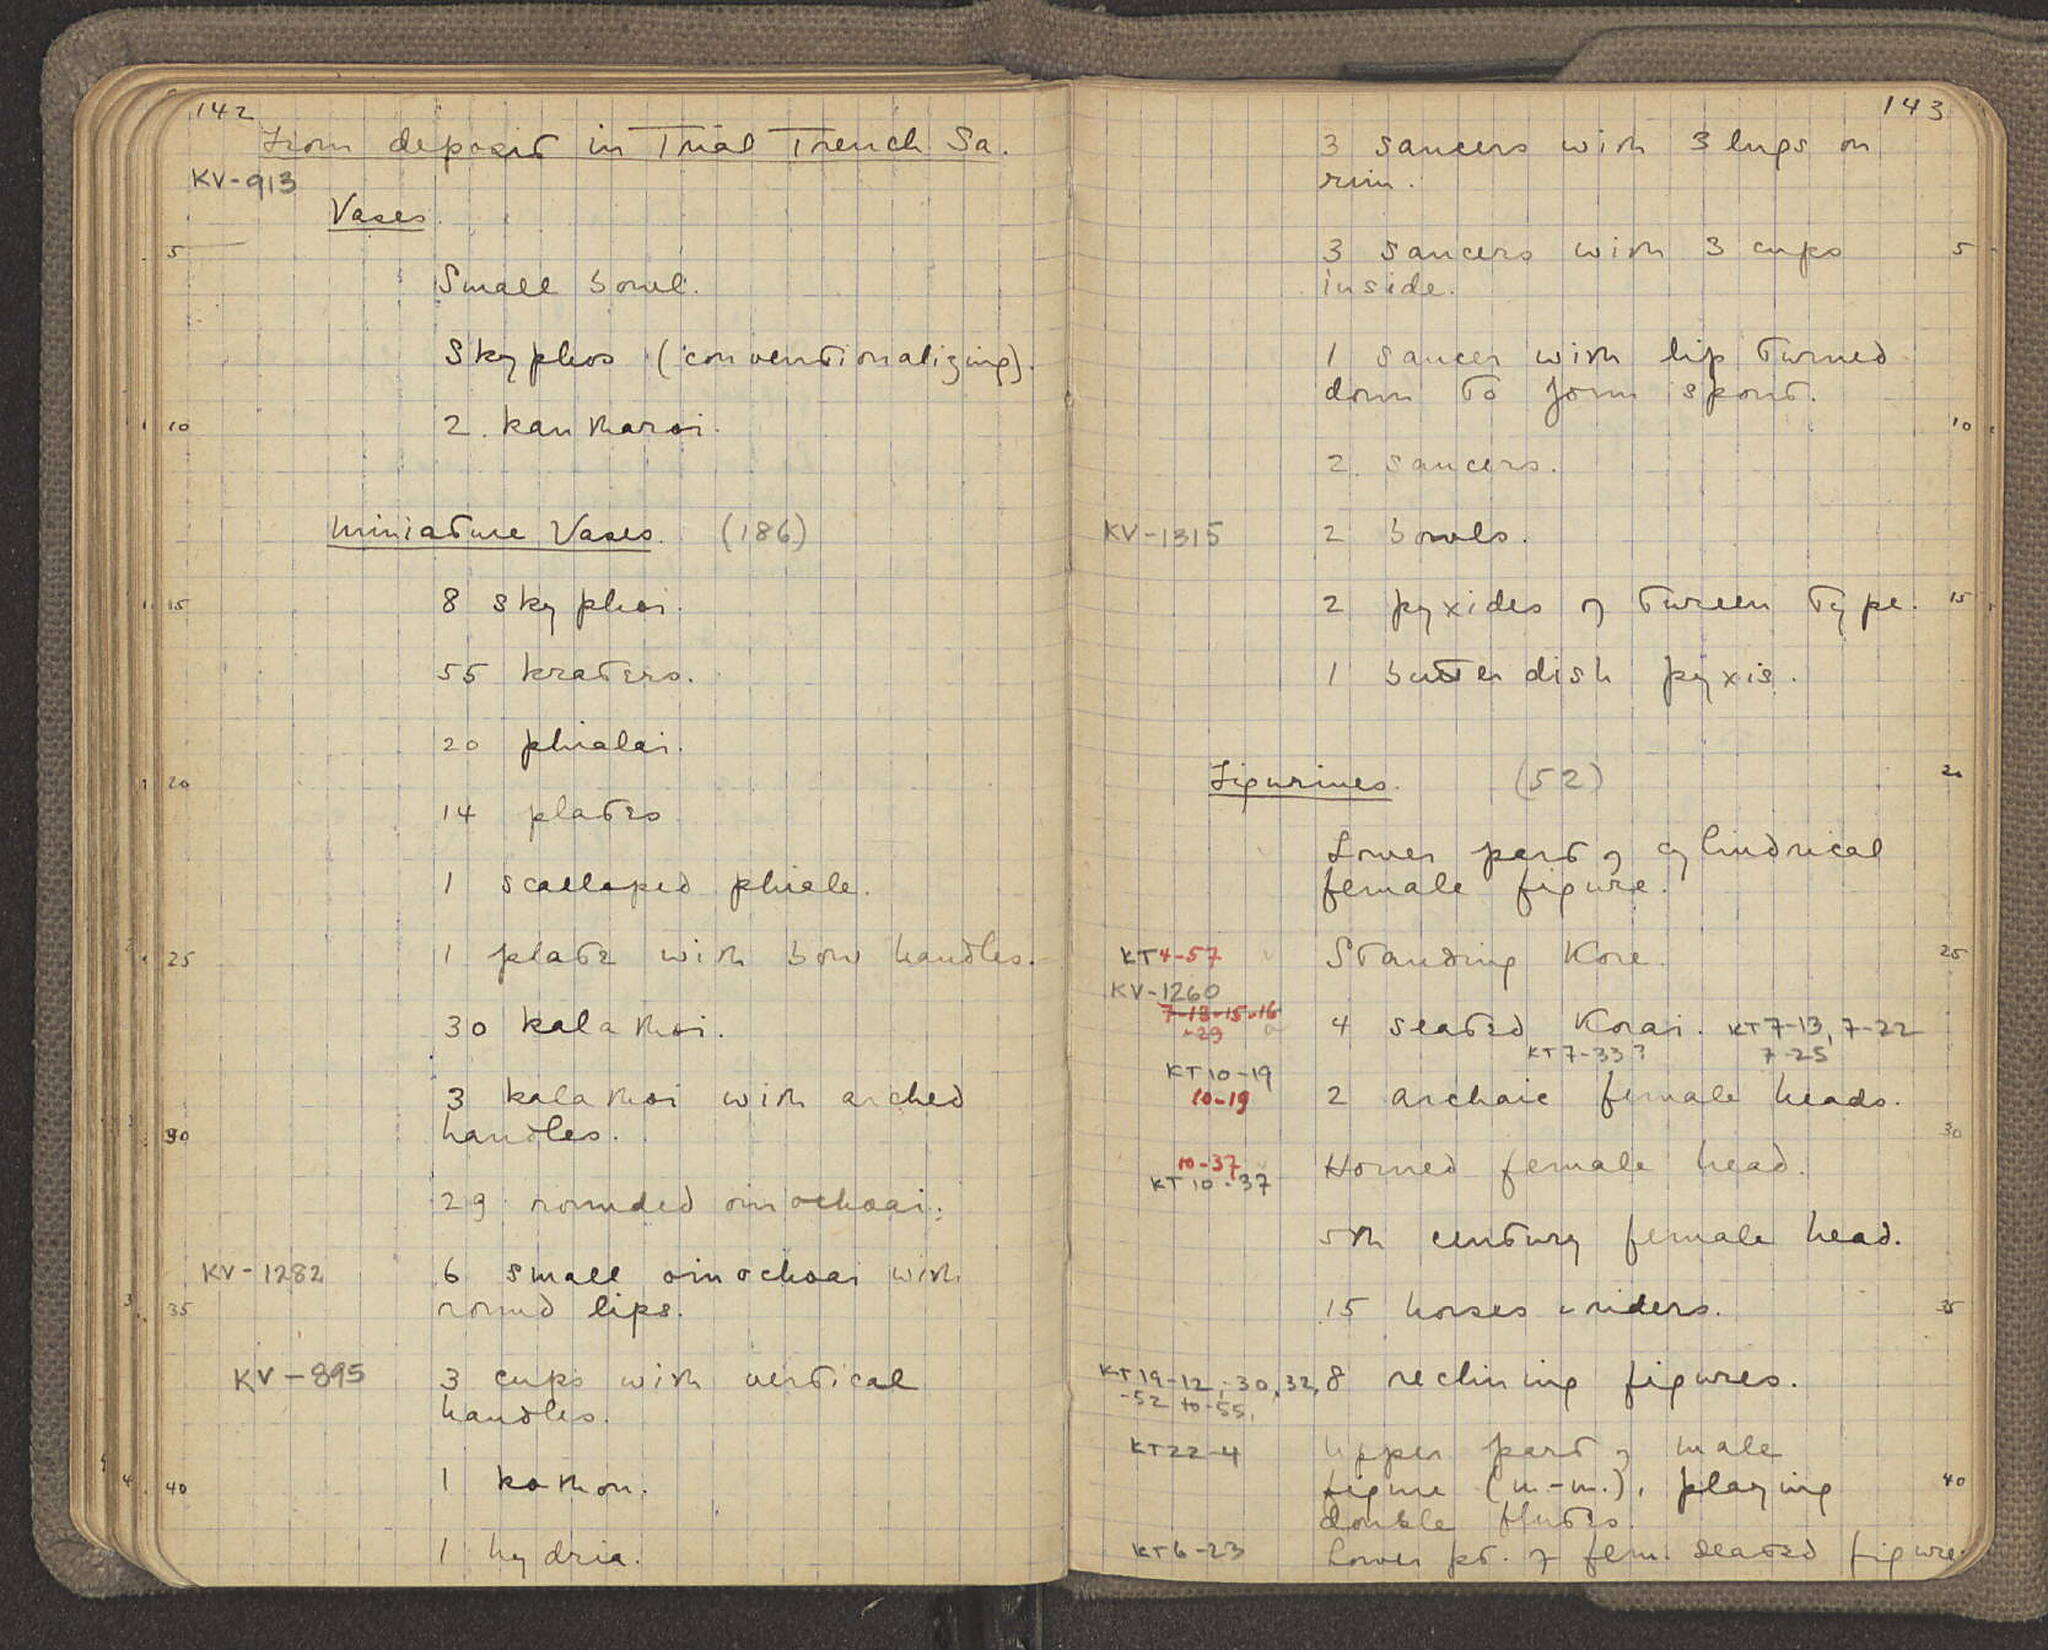 142
From deposit in Trial Trench Sa.
KV-913
Vases.
5
Small bowl.
Skyphos (conventionalizing).
10 2 kantharoi.
Miniature Vases. (186)
15 8 skyphoi.
55 kraters.
20 phialai.
20
14 plates
1 scalloped phiale.
25 1 plate with bow handles.
30 kalathoi.
3 kalathoi with arched
30 handles.
29 rounded oinochoai.
KV-1282 6 small oinochoai with
35 round lips.
KV-895 3 cups with vertical
handles.
40 1 kothon.
1 hydria.
143
3 saucers with 3 lugs on
rim.
3 saucers with 3 cups 5
inside.
1 saucer with lip turned
down to form spout.
10
2 saucers.
KV-1315 2 bowls.
2 pyxides of tureen type. 15
1 butter dish pyxis.
Figurines. (52) 20
Lower part of cylindrical
female figure.
KT4-57 Standing Kore. 25
KV-1260
7-13-15-16
-29 4 seated Korai. KT7-13, 7-22
KT7-33? 7-25
KT10-19
10-19 2 archaic female heads.
30
10-37 Horned female head.
KT10-37
5th century female head.
15 horses & riders. 35
KT19-12,-30,32, 8 reclining figures.
-52 to-55,
KT22-4 Upper part of male
figure (m.-m.), playing 40
double flutes.
KT6-23 Lower pt. of fem. seated figure.